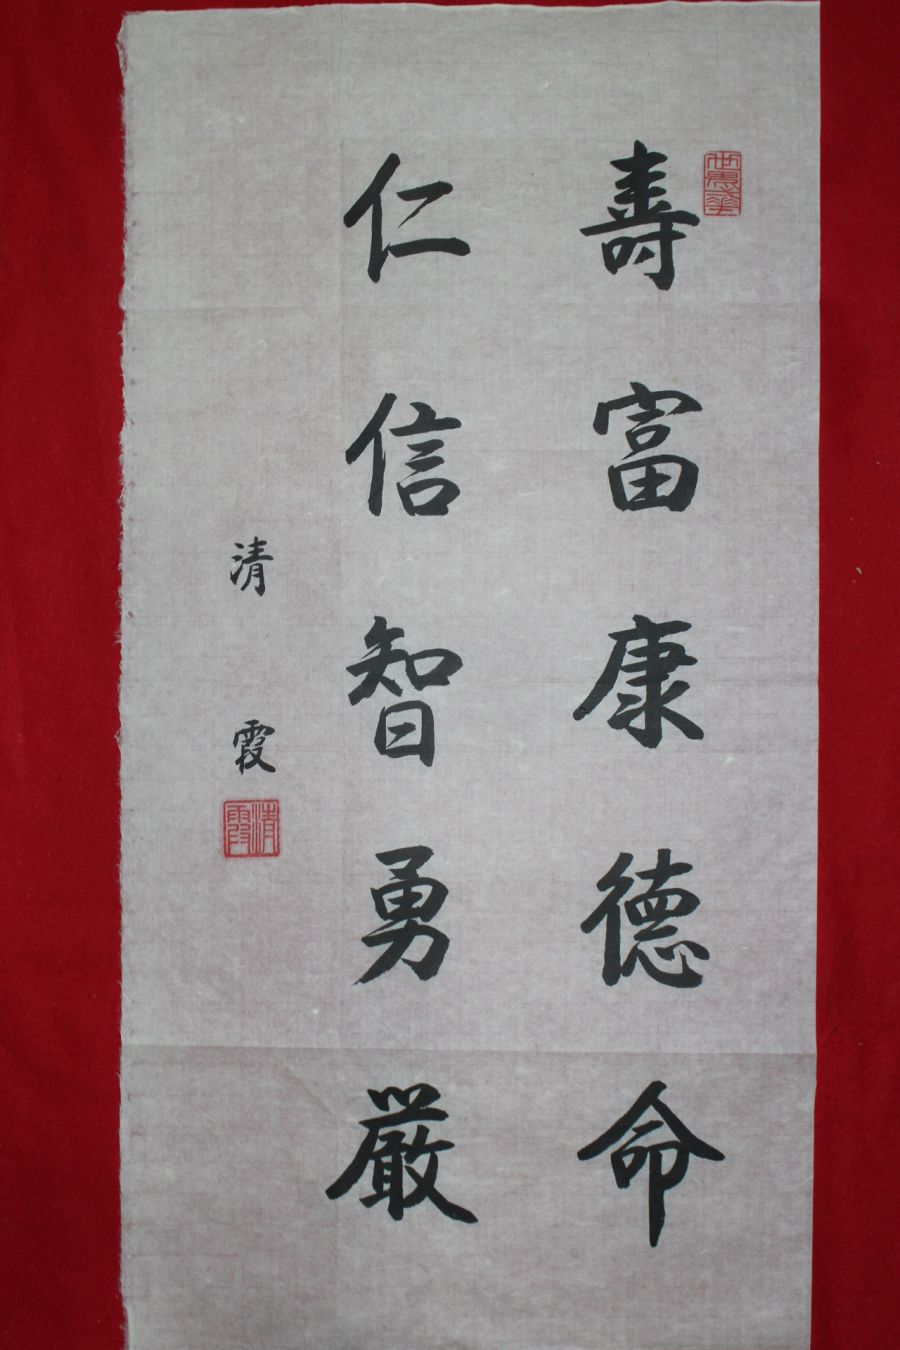 壽富康德命
仁信智勇嚴
清霞
清霞